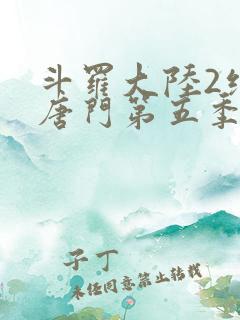 斗羅大陸2
唐門第五季
子丁
未經同意禁止轉載